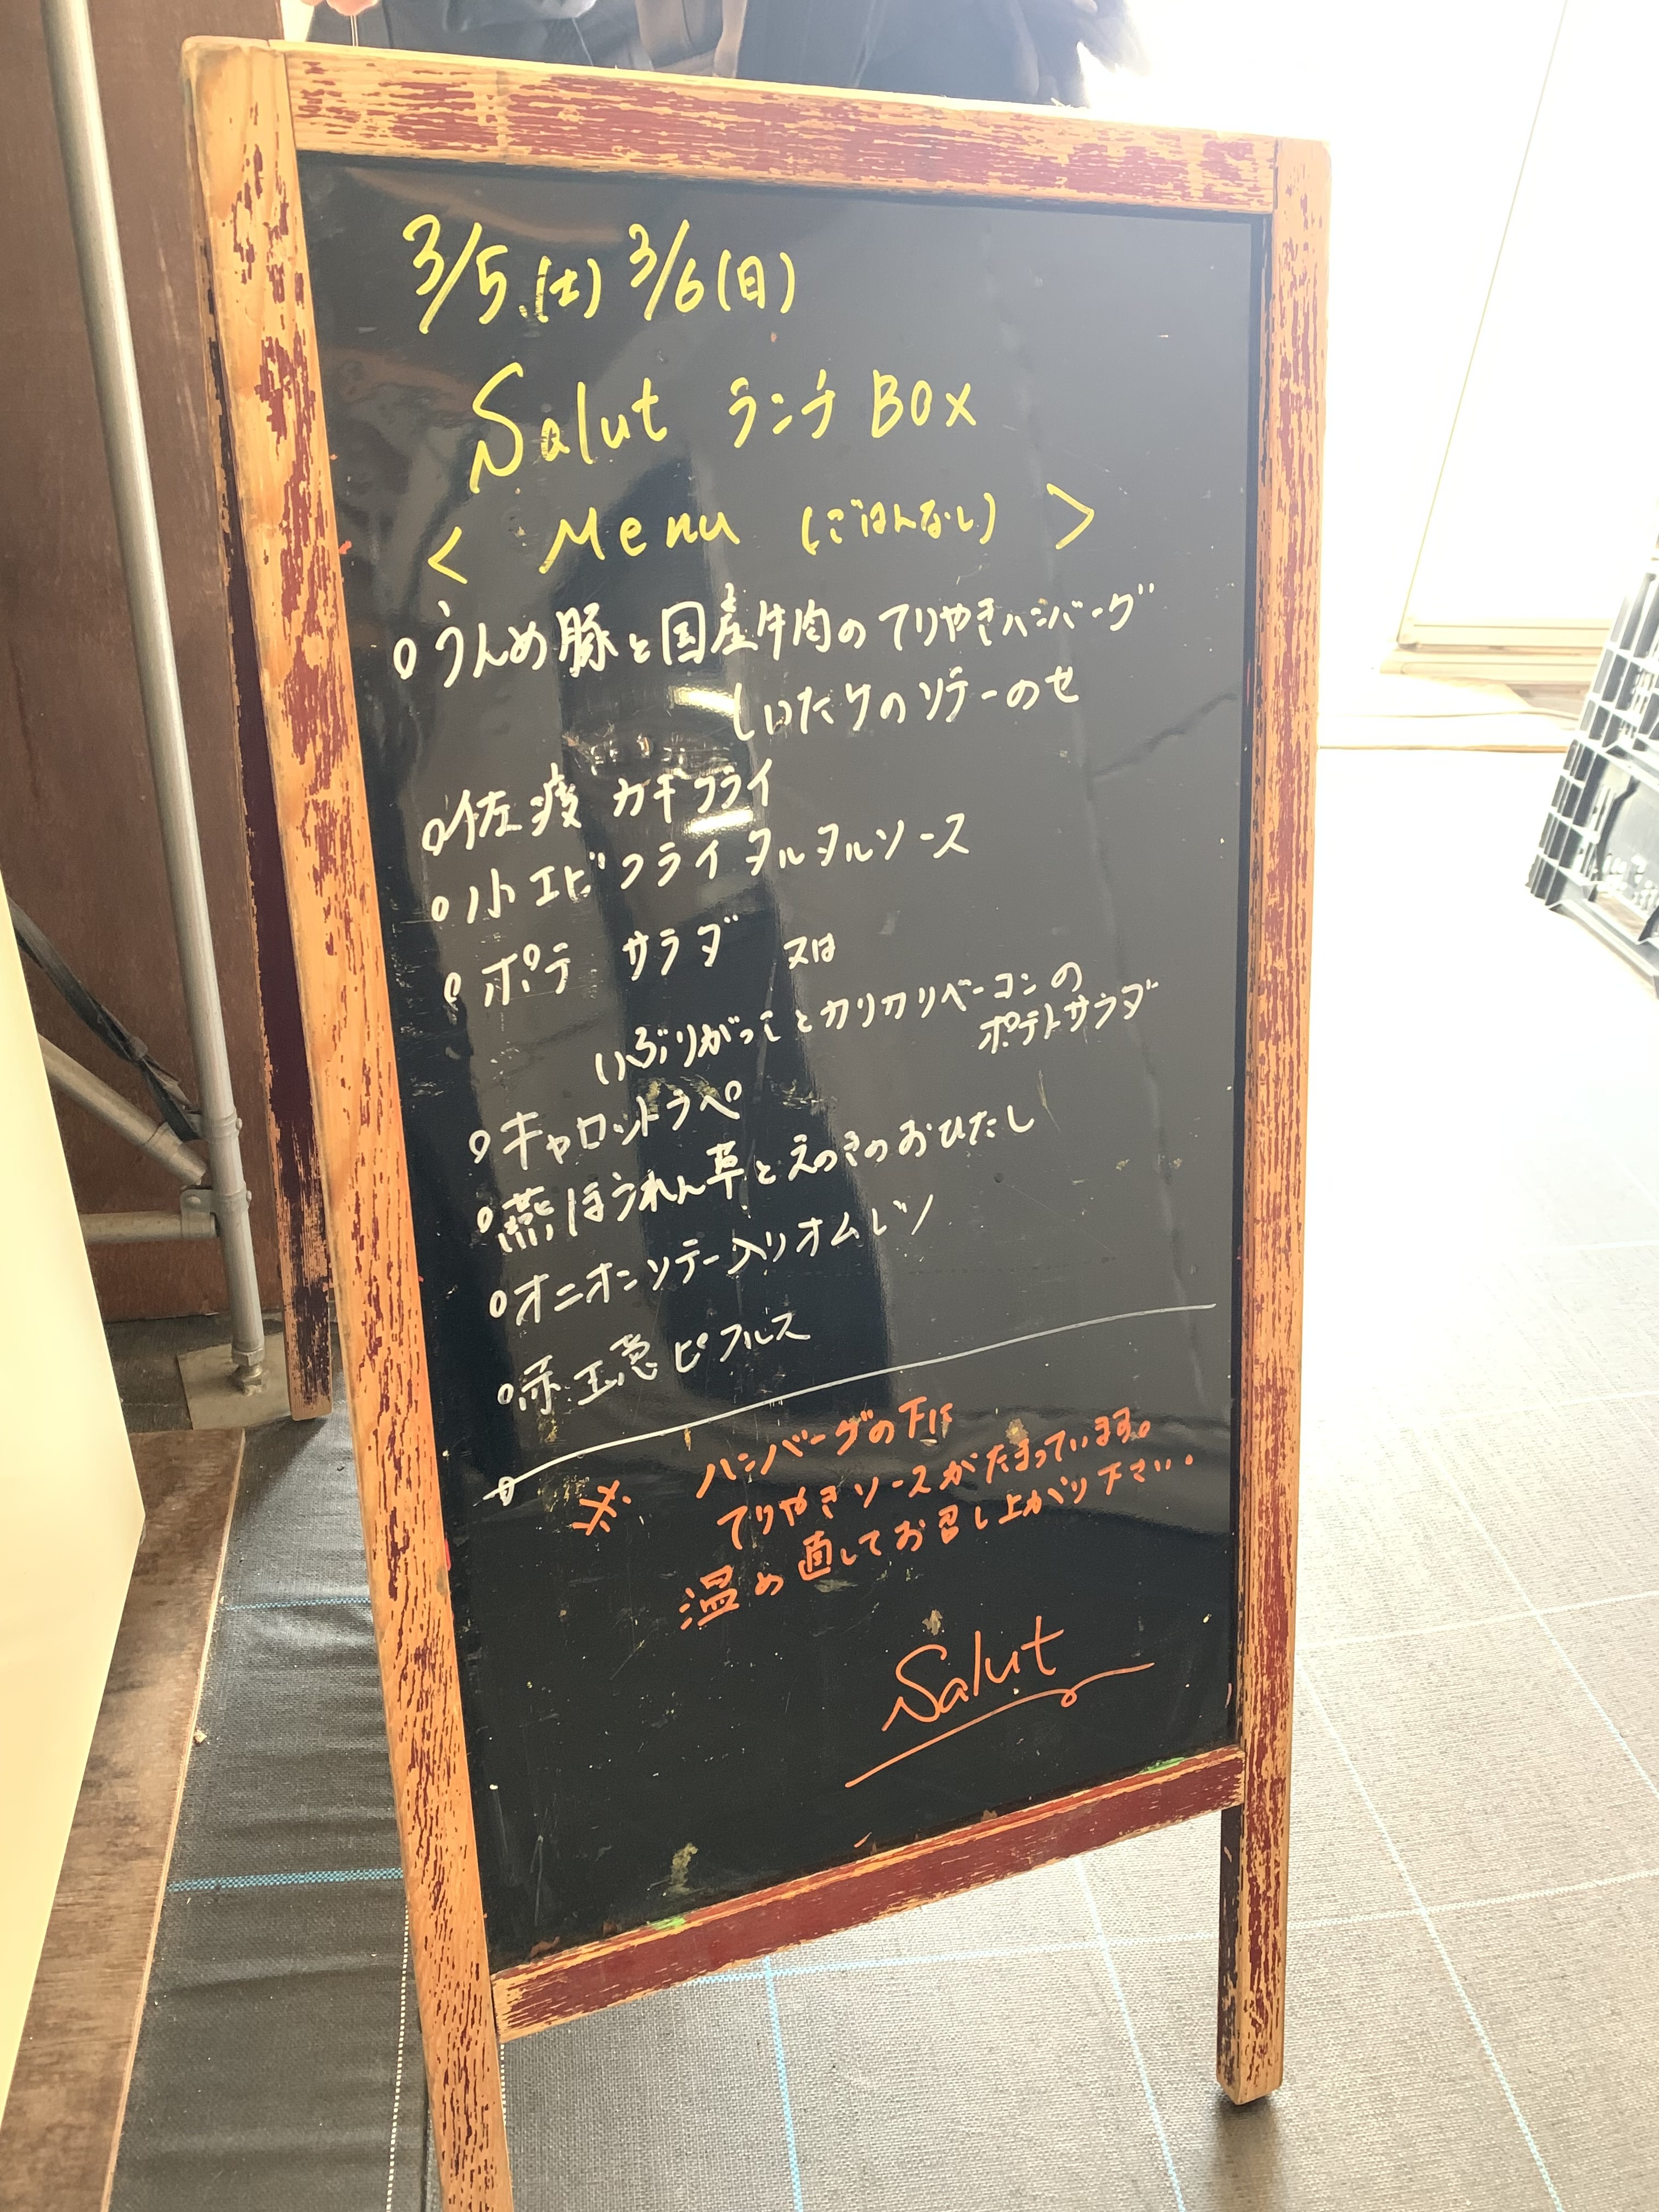 3/5(土) 3/6(日)
Salut ランチ BOX
< Menu (ごはんなし) >
○うんめ豚と国産牛肉のてりやきハンバーグ
しいたけのソテーのせ
○佐渡 カキフライ
○小エビフライタルタルソース
○ポテ サラダ 又は
いぶりがっことカリカリベーコンの
ポテトサラダ
○キャロットラペ
○燕ほうれん草とえのきのおひたし
○オニオンソテー入りオムレツ
○赤玉葱ピクルス
※ ハンバーグの下に
てりやきソースがたまっています。
温め直してお召し上がり下さい.
Salut